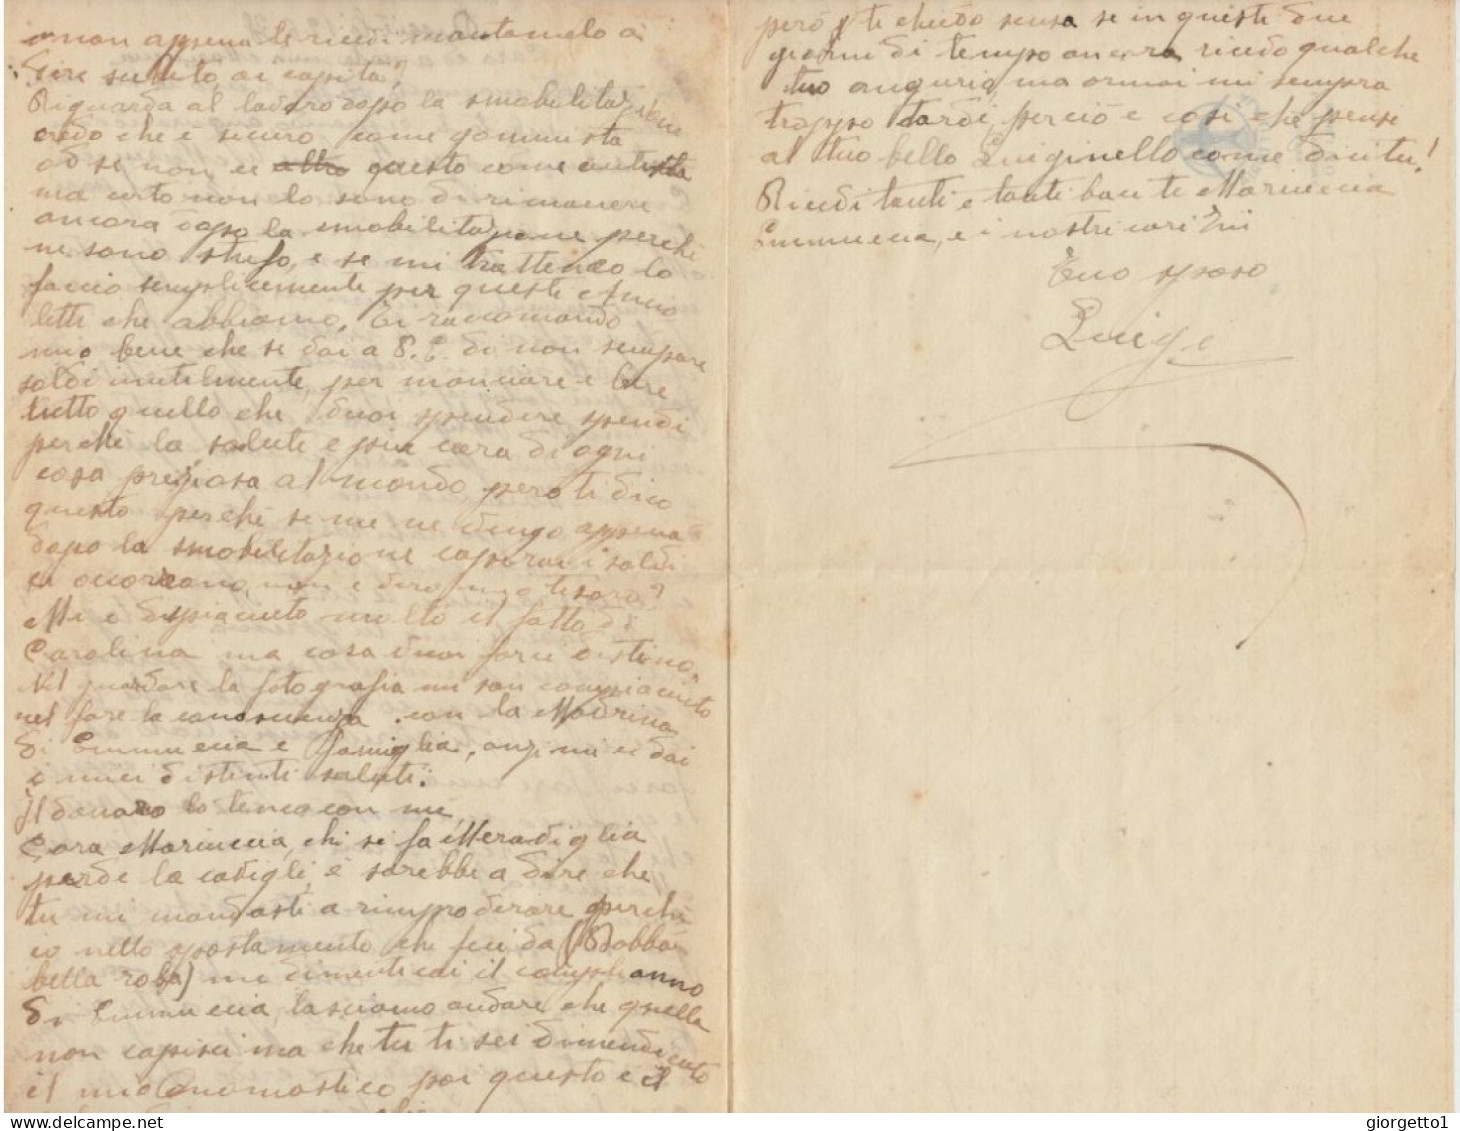 non appena le ricevi mantamelo a
dire subito, ai capito?
Riguarda al lavoro dopo la smobilitazione
credo che è sicuro come gommista
od se non ce altro questo come autista
ma certo non lo sono di rimanere
ancora dopo la smobilitazione perche
ne sono stufo, e se mi trattendo lo
faccio semplicemente per questi
letti che abbiamo. Ti raccomando
mio bene che se dai a P.C. di non sempare
soldi inutilmente, per manciare e bere
tutto quello che vuoi spendere spendi
perchè la saluti e piu cara di ogni
cosa preziosa al mondo, pero ti dico
questo perchè se me ne vengo appena
dopo la smobilitazione capirai i soldi
ci occorrano, non è vero mio tesoro?
Mi è dispiaciuto molto il fatto di
Carolina ma cosa vuoi farci destino.
Nel guardare la fotografia mi son compiaciuto
nel fare la conoscenza con la Madrina
di Emmuccia e Famiglia, anzi mi ci dai
i miei distinti saluti.
Il denaro lo tengo con me
Cara Mariuccia, chi si fa Meradiglia
perde la caviglie, e sarebbe a dire che
tu mi mandasti a rimproverare perchè
io nello spostamento che feci da (Babbà
bella roba) mi dimenticai il complianno
di Emmuccia, lasciamo andare che quella
non capisci ma che tu ti sei dimendicato
il mio Onomastico poi questo e il
però ti chiedo scusa se in questi due
giorni di tempo ancora ricevo qualche
tuo augurio, ma ormai mi sempra
troppo tardi, perciò e così che pensi
al tuo bello Luiginello come dici tu!
Ricevi tanti e tanti baci te Mariuccia
Emmuccia, e i nostri cari Zii
Tuo sposo
Luigi
giorgetto1